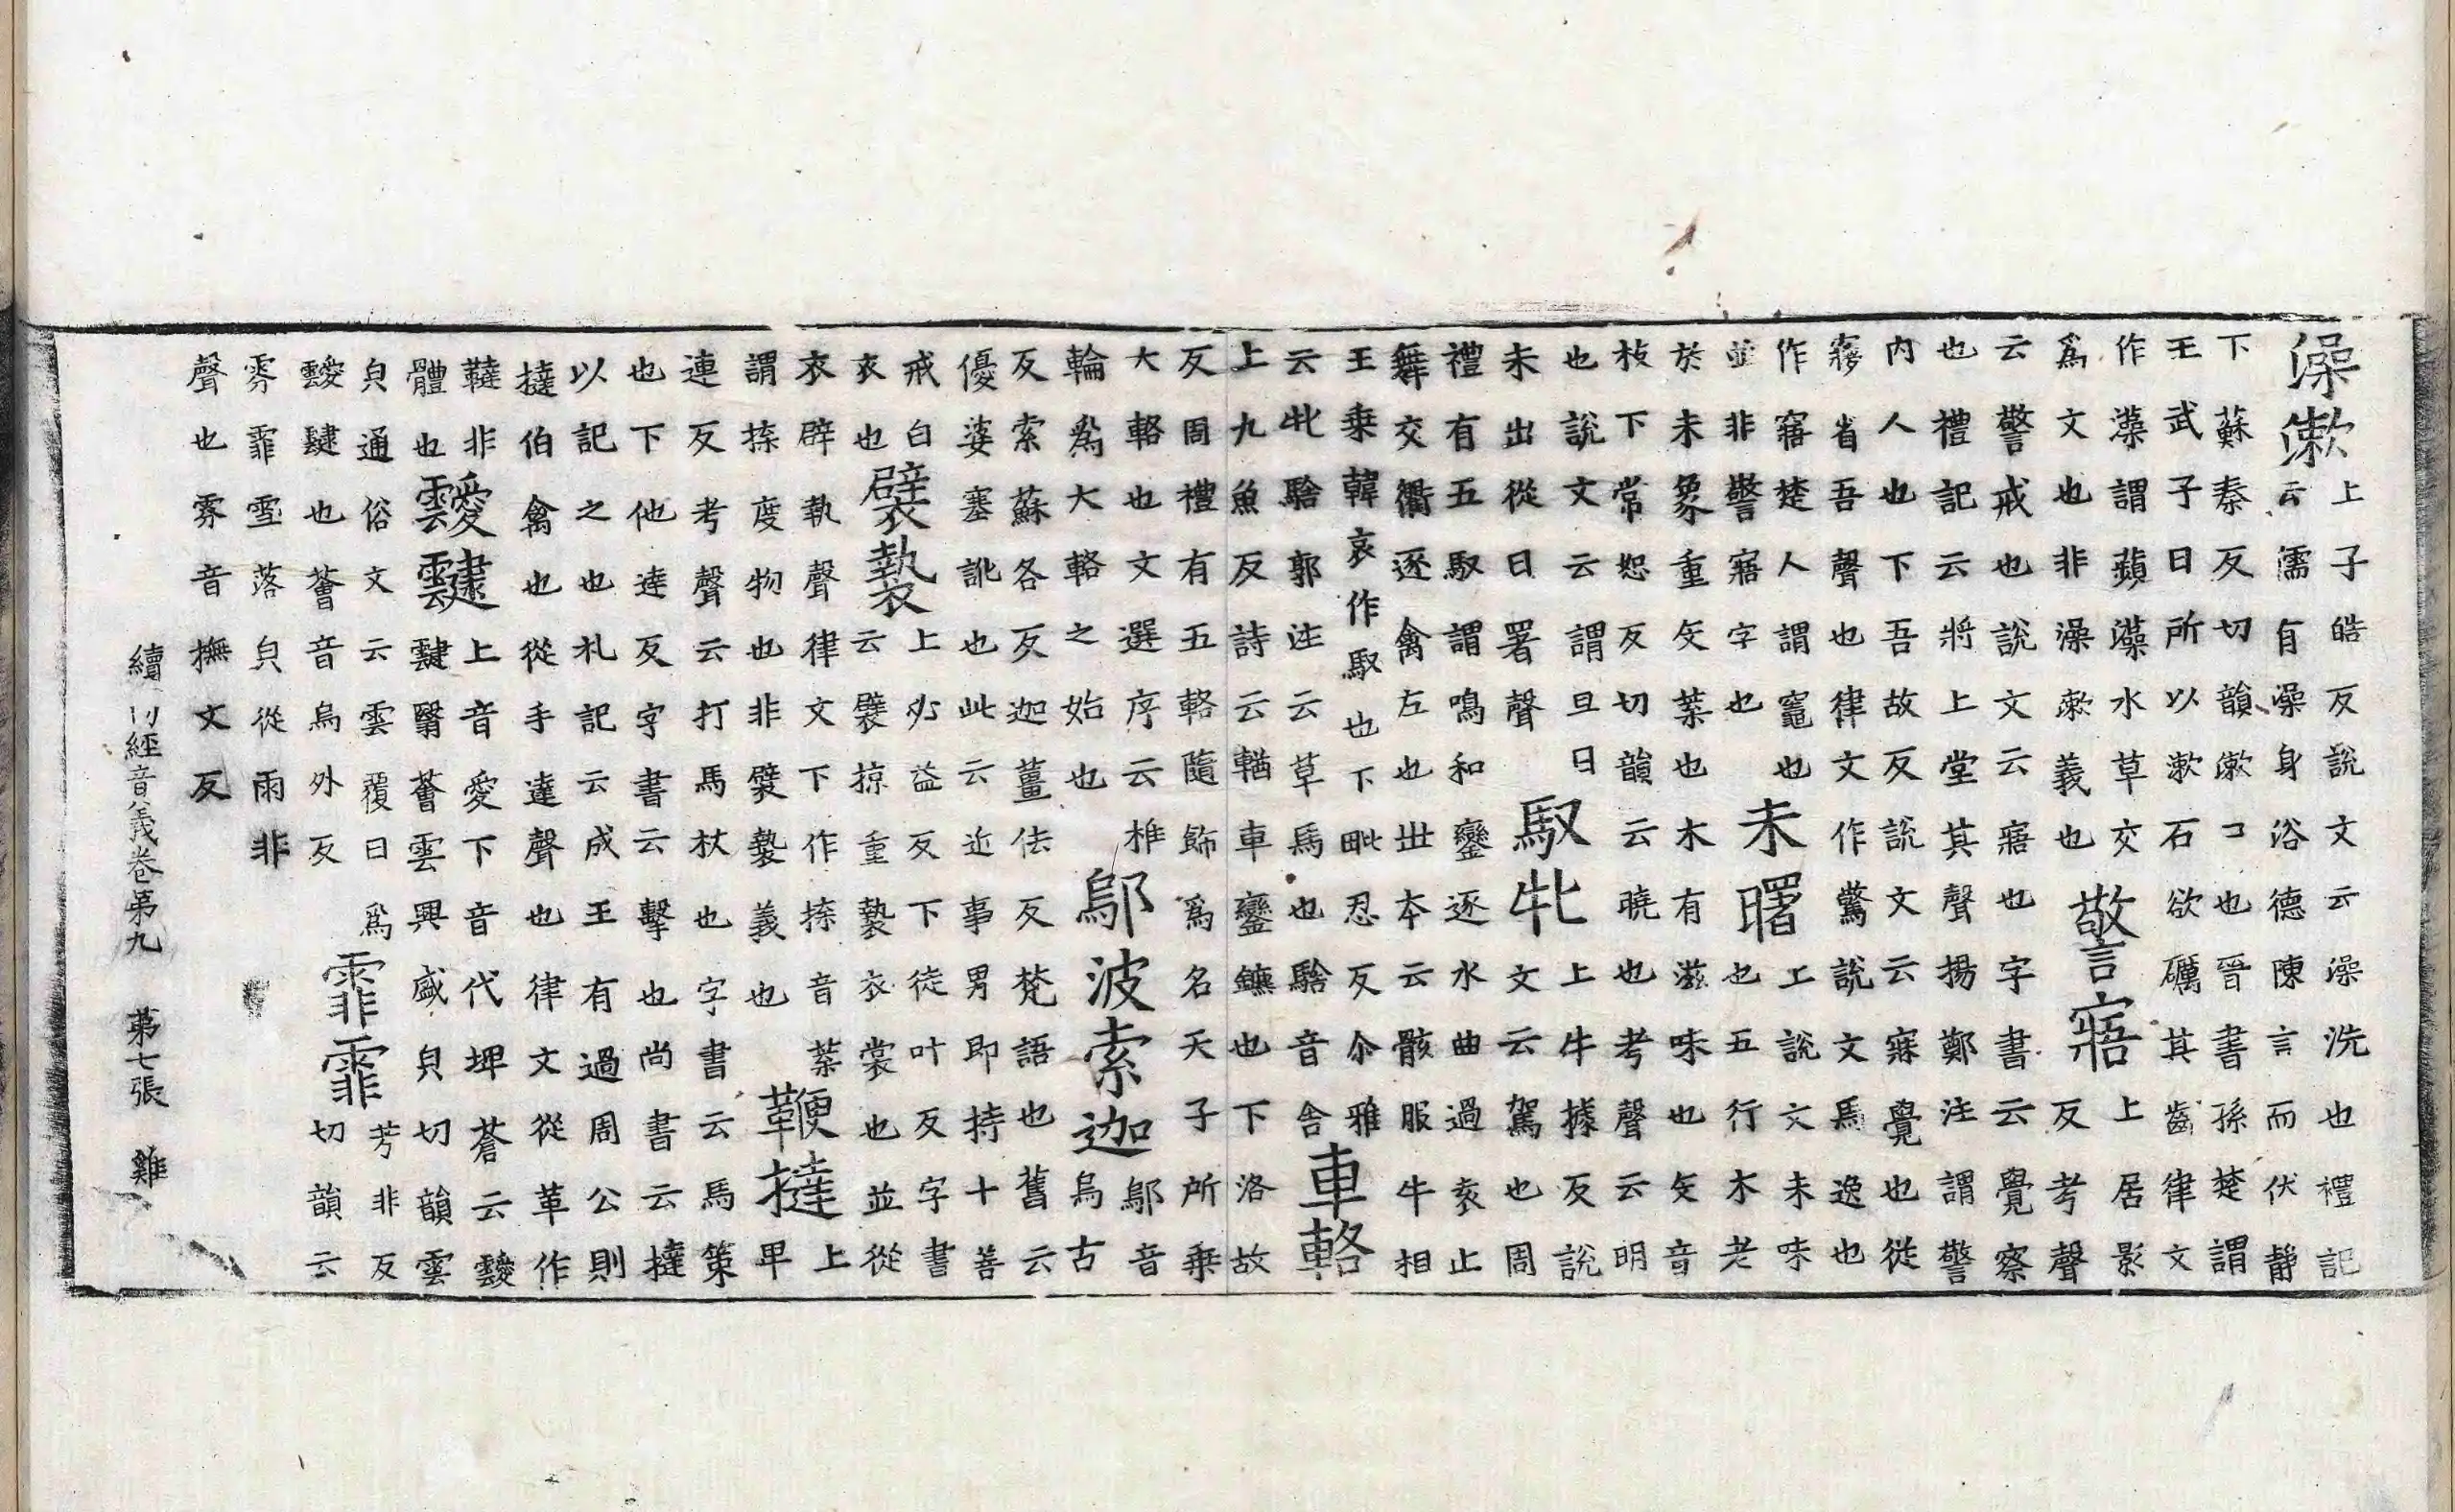 澡漱
上子皓反說文云澡洗也禮記
云儒有澡身浴德陳言而伏静
下蘇奏反切韻漱口也晉書孫楚謂
王武子曰所以漱石欲礪其齒律文
作藻謂蘋藻水草交
爲文也非澡漱義也
警寤
上居影
反考聲
云警戒也說文云寤也字書云覺察
也禮記云將上堂其聲揚鄭注謂警
内人也下吾故反說文云寐覺也從
㝱省吾聲也律文作驚說文馬逸也
作寤楚人謂竈也
並非警寤字也
未曙
上說文未味
也五行木老
於未象重文葉也木有滋味也文音
枝下常恕反切韻云曉也考聲云明
也說文云謂旦日
未出從日署聲
馭牝
上牛據反說
文云駕也周
禮有五馭謂鳴和鑾逐水曲過亥止
舞交衢逐禽左也丗本云骸服牛相
王乗韓哀作馭也下毗忍反尒雅
云牝騇郭注云草馬也騇音舍
車輅
上九魚反詩云輶車鑾鑣也下洛故
反周禮有五輅隨飾爲名天子所乗
大輅也文選序云椎
輪爲大輅之始也
鄔波索迦
鄔音
烏古
反索蘇各反迦薑佉反梵語也舊云
優婆塞訛也此云近事男即持十善
戒白
衣也
襞褺
上必益反下徒叶反字書
云襞掠重褺衣裳也並從
衣辟執聲律文下作㨷音葉
謂㨷度物也非襞褺義也
鞭撻
上
卑
連反考聲云打馬杖也字書云馬策
也下他達反字書云擊也尚書云撻
以記之也札記云成王有過周公則
撻伯禽也從手達聲也律文從革作
韃非
體也
靉靆
上音愛下音代埤蒼云靉
靆翳薈雲興盛皃切韻雲
皃通俗文云雲覆日爲
靉靆也薈音烏外反
霏霏
芳非反
切韻云
雰霏雪落皃從雨非
聲也雰音撫文反
續一切經音義卷第九　第七張　雞